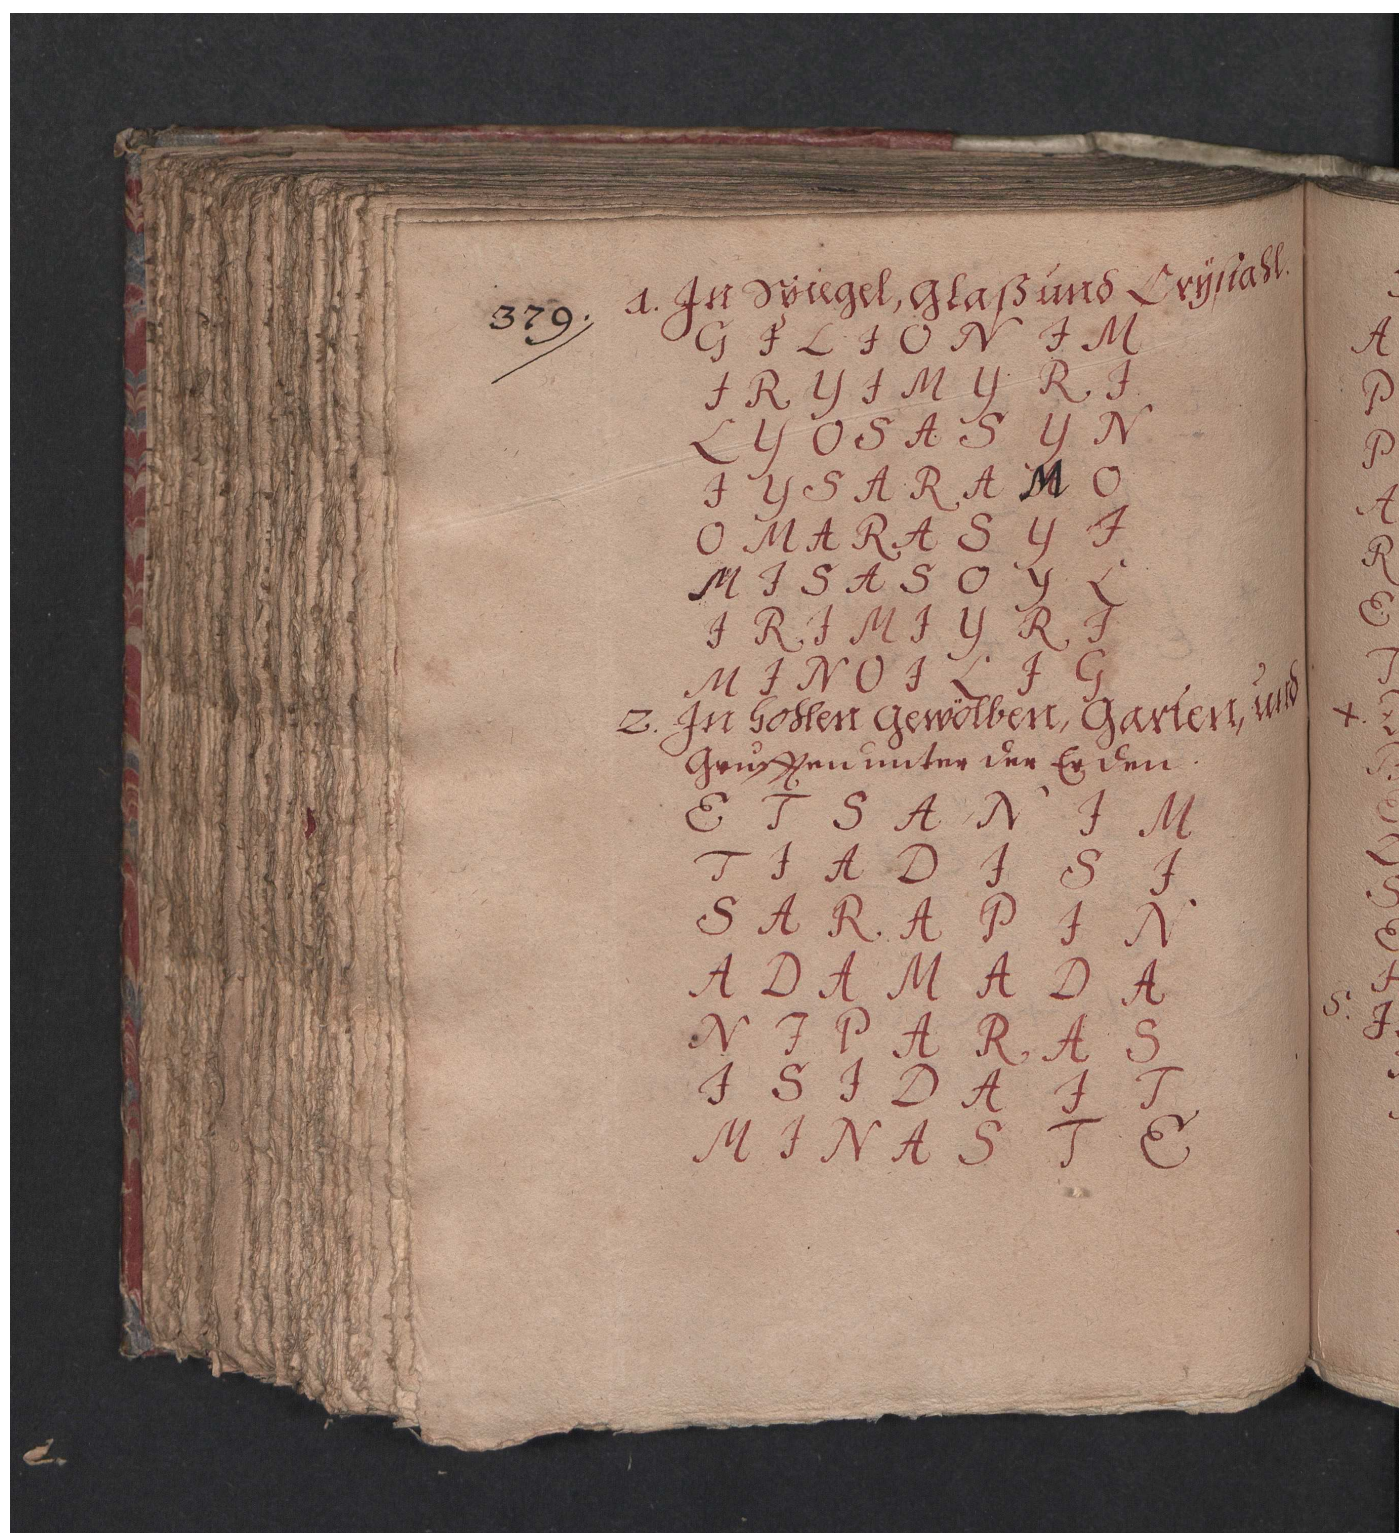 379.
1. In Spiegel, Glaß und Crÿstahl.
G I L I O N I M
I R Y I M Y R I
L Y O S A S Y N
I Y S A R A M O
O M A R A S Y I
M I S A S O Y L
I R I M I Y R I
M I N O I L I G
2. In hohlen Gewölben, Garten, und
unter der Erden
E T S A N I M
T I A D I S I
S A R A P I N
A D A M A D A
N I P A R A S
I S I D A I T
M I N A S T E
A
P
P
A
R
E
T
x
S.